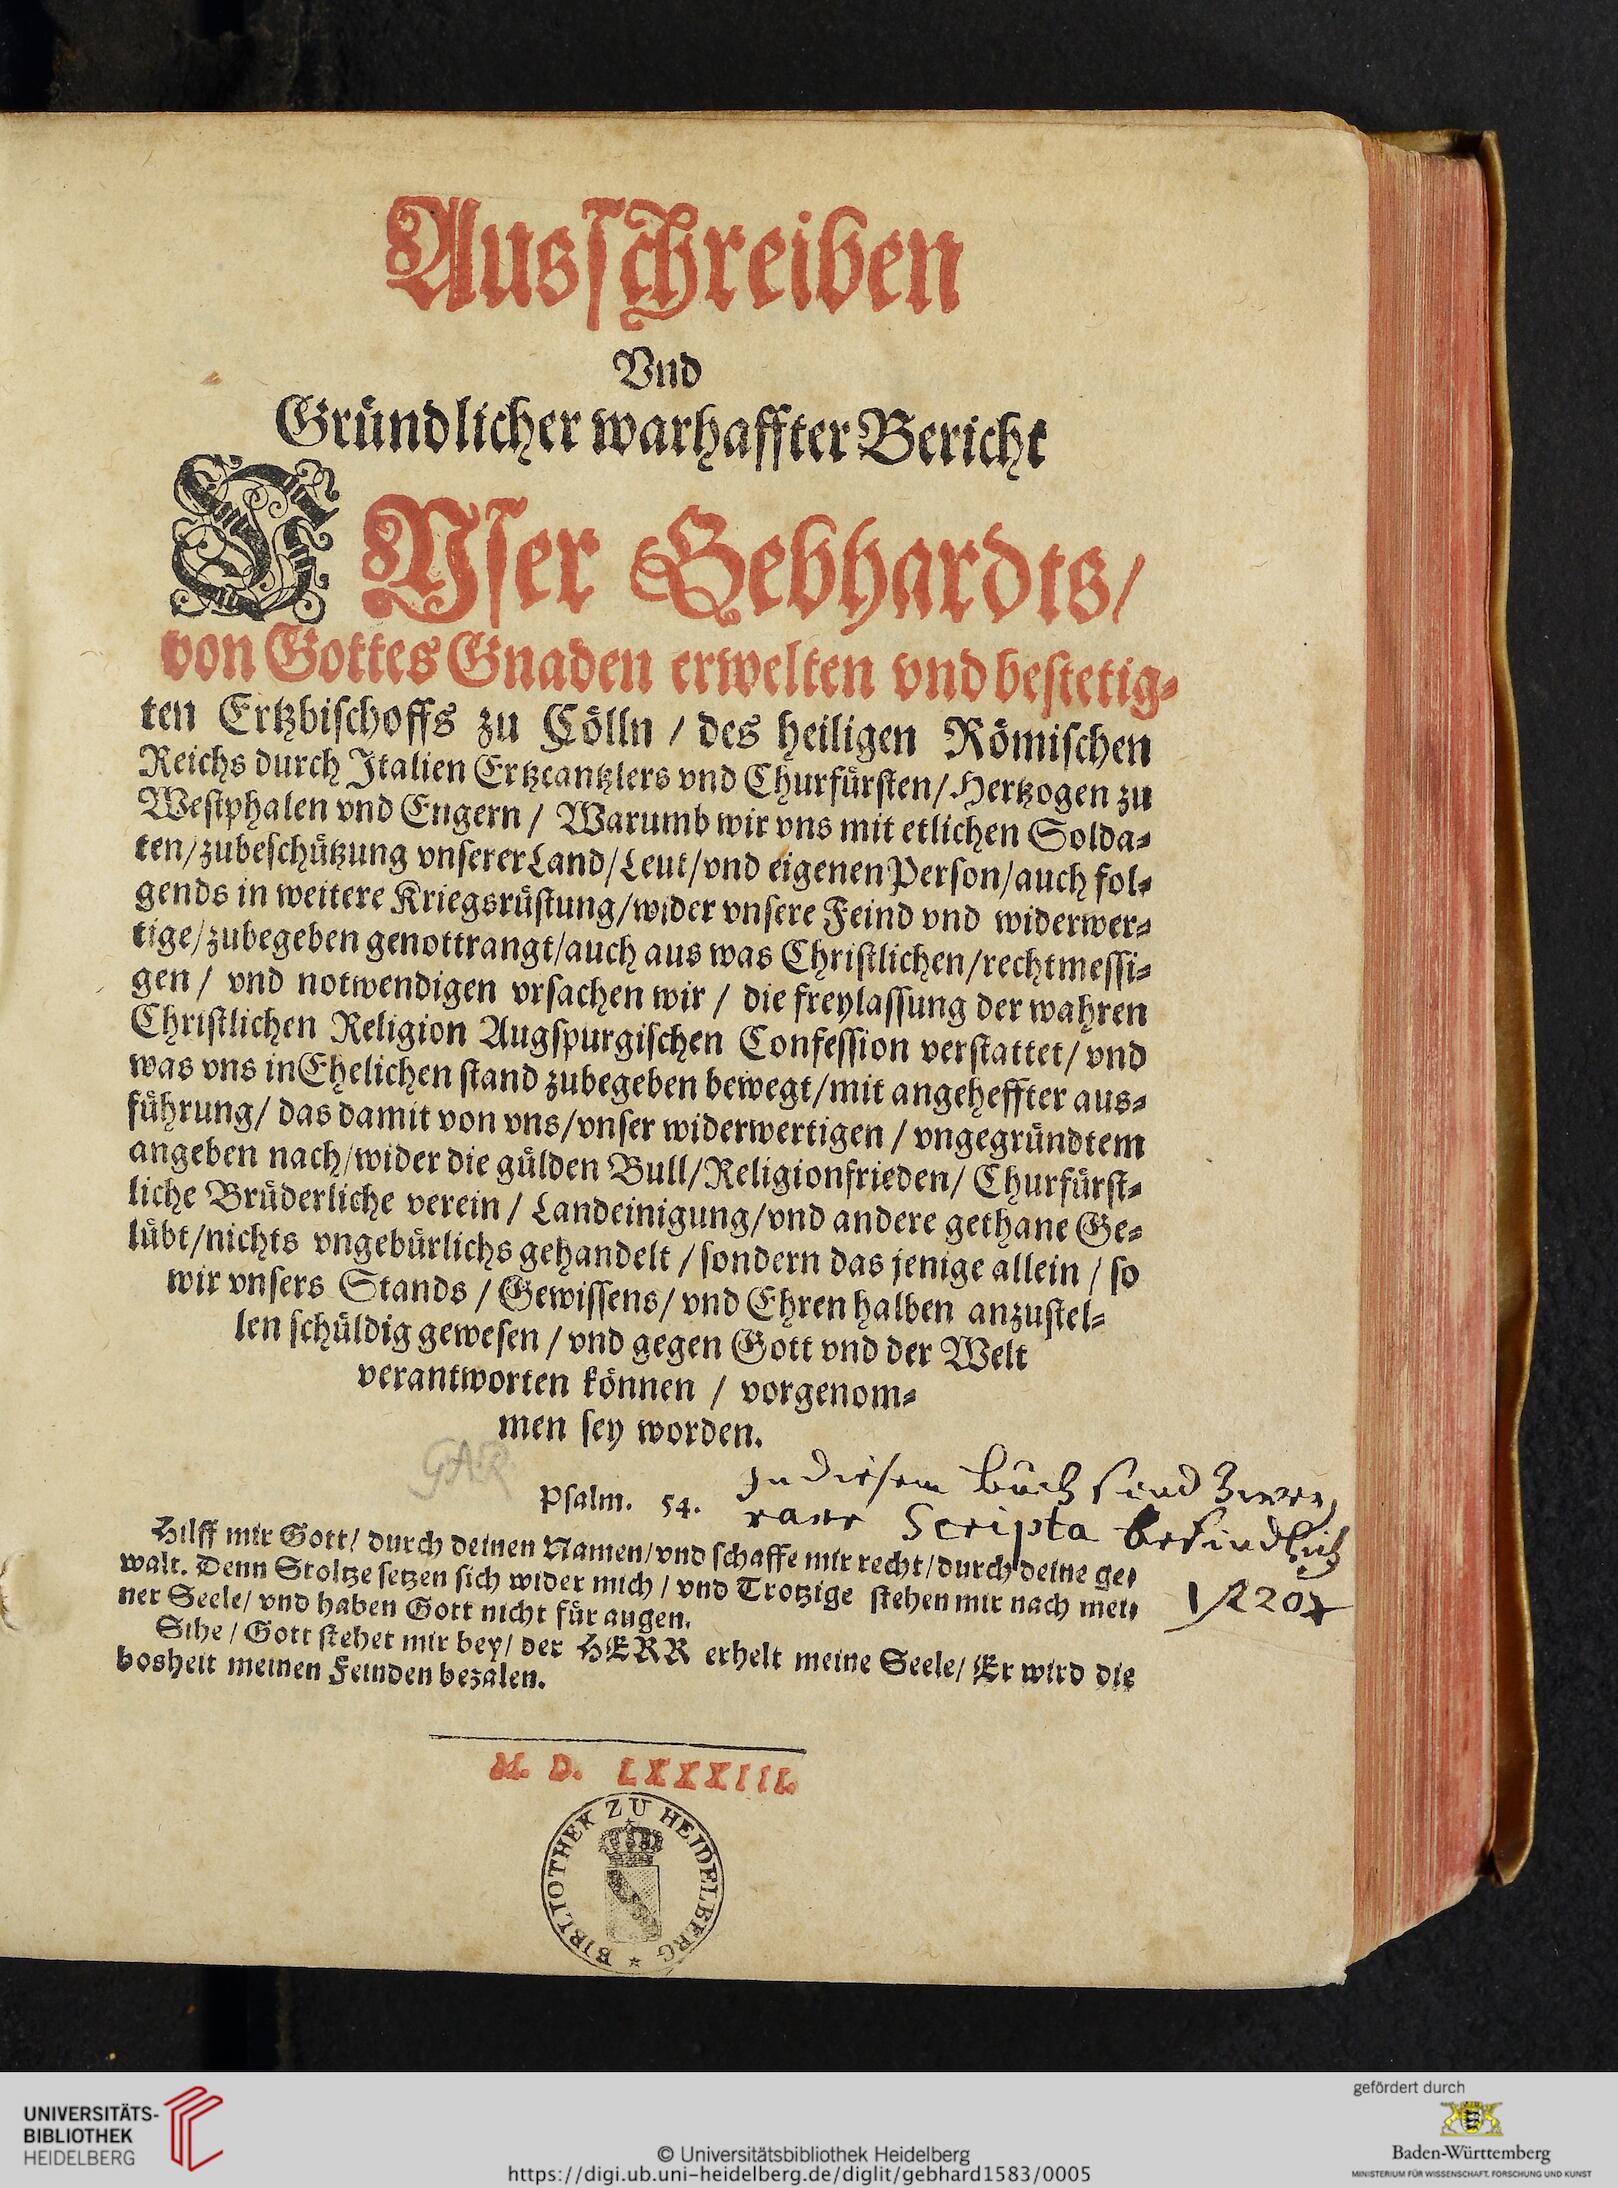 Ausschreiben
Vnd
Gründlicher warhaffter Bericht
VNser Gebhardts/
von Gottes Gnaden erwelten vnd bestetig-
ten Ertzbischoffs zu Cölln / des heiligen Römischen
Reichs durch Italien Ertzcantzlers vnd Churfürsten/ Hertzogen zu
Westphalen vnd Engern / Warumb wir vns mit etlichen Solda-
ten/zubeschützung vnserer Land/Leut/vnd eigenen Person/auch fol-
gends in weitere Kriegsrüstung/wider vnsere Feind vnd widerwer-
tige/zubegeben genottrangt/auch aus was Christlichen/rechtmessi-
gen / vnd notwendigen vrsachen wir / die freylassung der wahren
Christlichen Religion Augspurgischen Confession verstattet/ vnd
was vns in Ehelichen stand zubegeben bewegt/mit angeheffter aus-
führung/ das damit von vns/vnser widerwertigen / vngegründtem
angeben nach/wider die gülden Bull/Religionfrieden/ Churfürst-
liche Brüderliche verein / Landeinigung/vnd andere gethane Ge-
lübt/nichts vngebürlichs gehandelt / sondern das jenige allein / so
wir vnsers Stands / Gewissens/ vnd Ehren halben anzustel-
len schüldig gewesen / vnd gegen Gott vnd der Welt
verantworten können / vorgenom-
men sey worden.
GAR
In diesem Buch sind zwey
Psalm. 54.
rare Scripta befindlich
Hilff mir Gott/ durch deinen Namen/vnd schaffe mir recht/durch deine ge-
walt. Denn Stoltze setzen sich wider mich / vnd Trotzige stehen mir nach mei-
ner Seele/ vnd haben Gott nicht für augen.
Sihe / Gott stehet mir bey/ der HERR erhelt meine Seele/ Er wird die
bosheit meinen Feinden bezalen.
M. D. LXXXIII.
BIBLIOTHEK ZU HEIDELBERG
UNIVERSITÄTS-
BIBLIOTHEK
HEIDELBERG
© Universitätsbibliothek Heidelberg
https://digi.ub.uni-heidelberg.de/diglit/gebhard1583/0005
gefördert durch
Baden-Württemberg
MINISTERIUM FÜR WISSENSCHAFT, FORSCHUNG UND KUNST